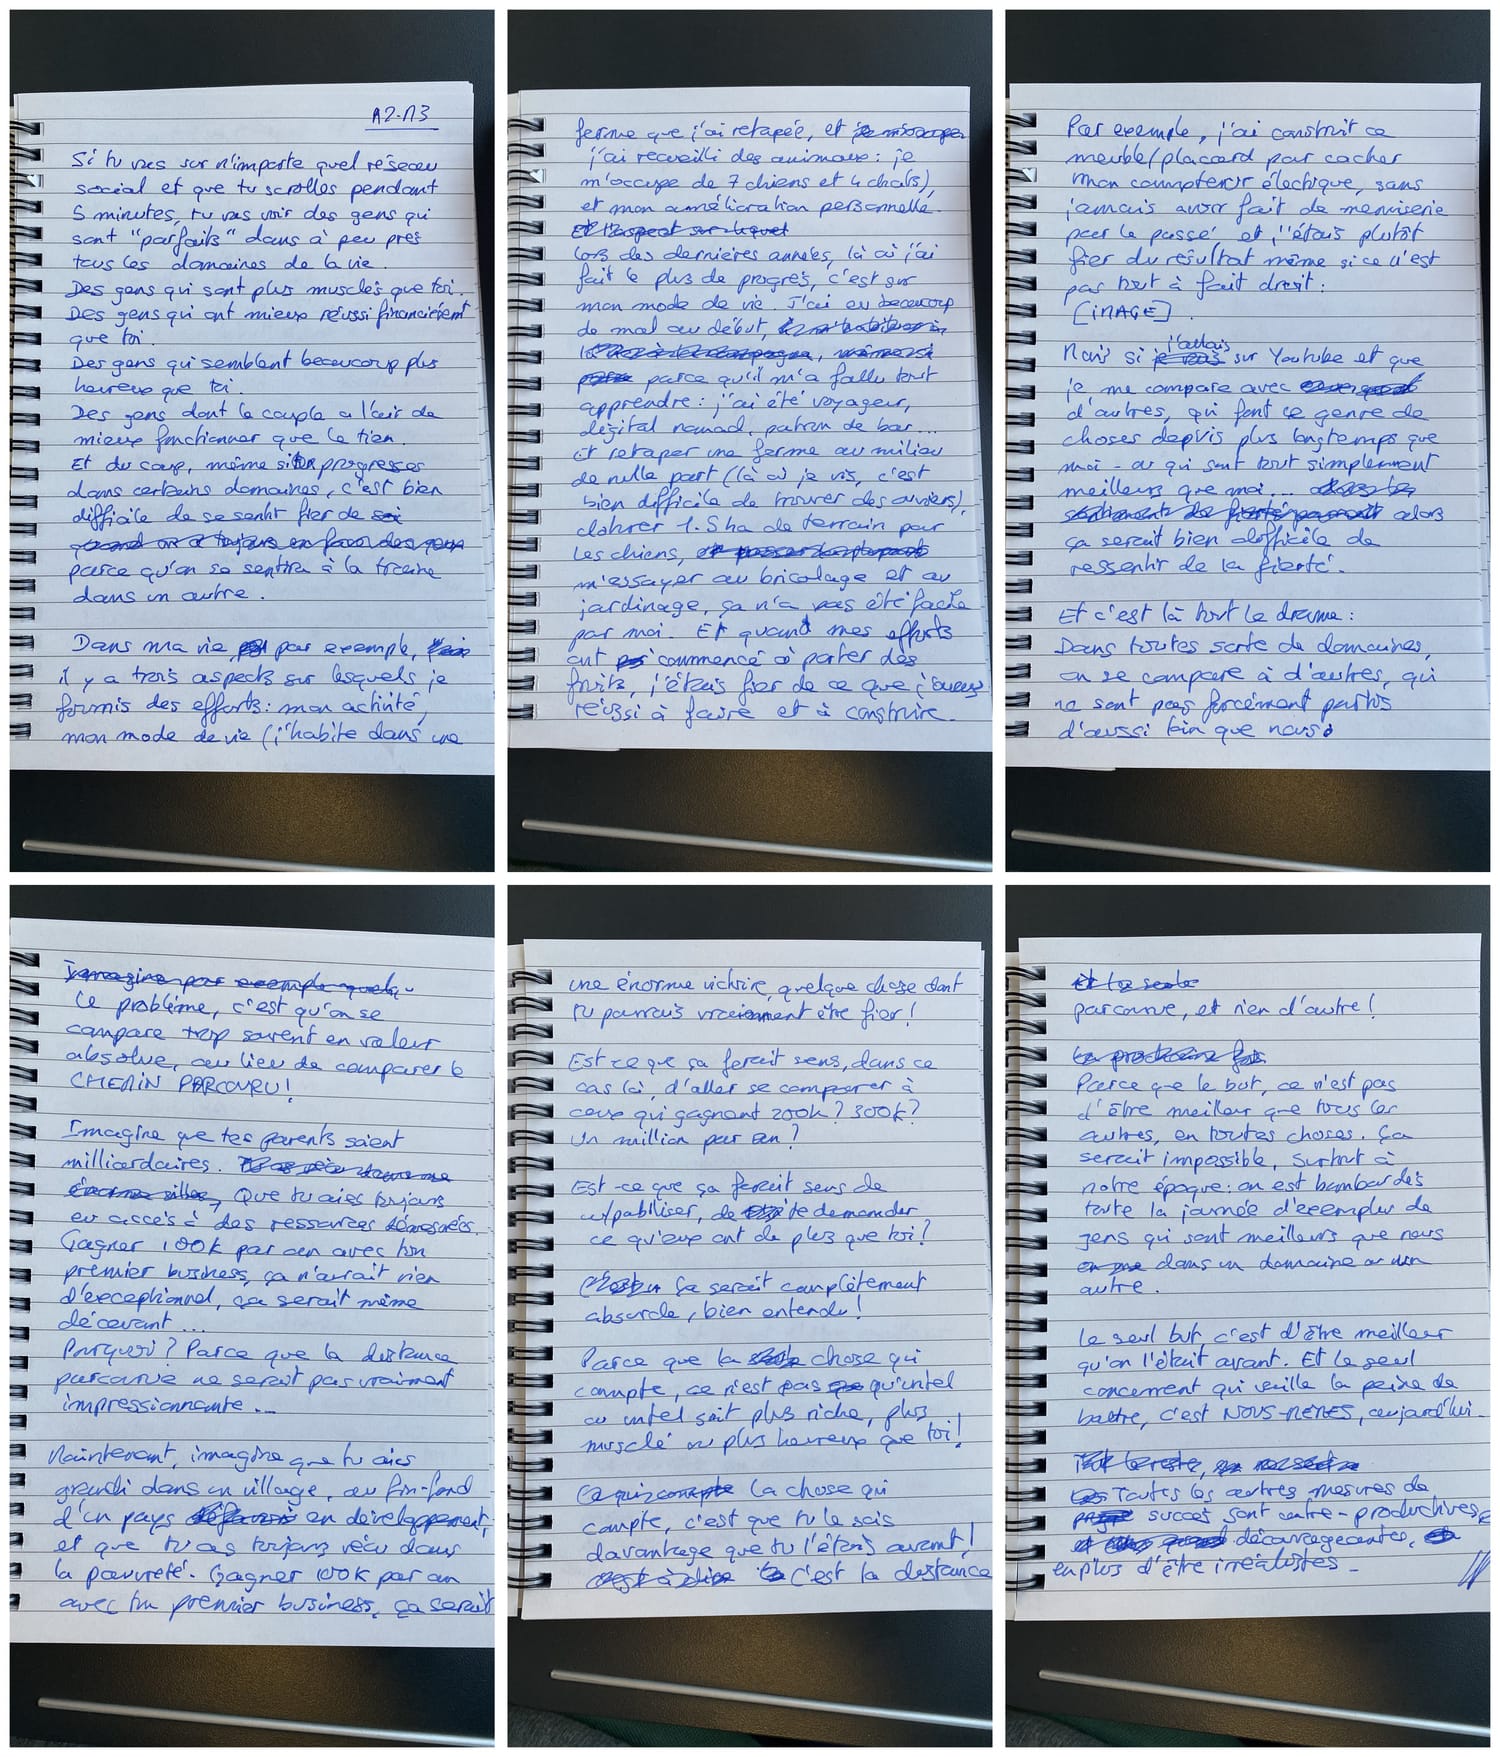 A2-M3
Si tu vas sur n'importe quel réseau
social et que tu scrolles pendant
5 minutes, tu vas voir des gens qui
sont "parfaits" dans à peu près
tous les domaines de la vie.
Des gens qui sont plus musclés que toi.
Des gens qui ont mieux réussi financièrement
que toi.
Des gens qui semblent beaucoup plus
heureux que toi.
Des gens dont le couple a l'air de
mieux fonctionner que le tien.
Et du coup, même si tu progresses
dans certains domaines, c'est bien
difficile de se sentir fier de soi
quand on a toujours en face des gens
parce qu'on se sentira à la traîne
dans un autre.
Dans ma vie par exemple,
il y a trois aspects sur lesquels je
fournis des efforts : mon activité,
mon mode de vie (j'habite dans une
ferme que j'ai retapée, et je m'occupe
j'ai recueilli des animaux : je
m'occupe de 7 chiens et 4 chats),
et mon amélioration personnelle.
Et l'aspect sur lequel
Lors des dernières années, là où j'ai
fait le plus de progrès, c'est sur
mon mode de vie. J'ai eu beaucoup
de mal au début,
à la campagne, même si
parce qu'il m'a fallu tout
apprendre : j'ai été voyageur,
digital nomad, patron de bar...
Et retaper une ferme au milieu
de nulle part (là où je vis, c'est
bien difficile de trouver des ouvriers),
clôturer 1.5 ha de terrain pour
les chiens,
m'essayer au bricolage et au
jardinage, ça n'a pas été facile
pour moi. Et quand mes efforts
ont commencé à porter des
fruits, j'étais fier de ce que j'avais
réussi à faire et à construire.
Par exemple, j'ai construit ce
meuble/placard pour cacher
mon compteur électrique, sans
jamais avoir fait de menuiserie
par le passé et j'étais plutôt
fier du résultat même si ce n'est
pas tout à fait droit :
[IMAGE].
j'allais
Mais si je vais sur Youtube et que
je me compare avec
d'autres, qui font ce genre de
choses depuis plus longtemps que
moi - ou qui sont tout simplement
meilleurs que moi...
sentiments de fierté alors
ça serait bien difficile de
ressentir de la fierté.
Et c'est là tout le drame :
Dans toutes sorte de domaines,
on se compare à d'autres, qui
ne sont pas forcément partis
d'aussi loin que nous.
Imagine par exemple quelqu'
Le problème, c'est qu'on se
compare trop souvent en valeur
absolue, au lieu de comparer le
CHEMIN PARCOURU !
Imagine que tes parents soient
milliardaires.
énorme villa, Que tu aies toujours
eu accès à des ressources démesurées.
Gagner 100k par an avec ton
premier business, ça n'aurait rien
d'exceptionnel, ça serait même
décevant...
Pourquoi ? Parce que la distance
parcourue ne serait pas vraiment
impressionnante...
Maintenant, imagine que tu aies
grandi dans un village, au fin-fond
d'un pays défavorisé en développement,
et que tu as toujours vécu dans
la pauvreté. Gagner 100k par an
avec ton premier business, ça serait
une énorme victoire, quelque chose dont
tu pourrais vraiment être fier !
Est ce que ça ferait sens, dans ce
cas là, d'aller se comparer à
ceux qui gagnent 200k ? 300k ?
Un million par an ?
Est-ce que ça ferait sens de
culpabiliser, de te demander
ce qu'eux ont de plus que toi ?
Ça serait complètement
absurde, bien entendu !
Parce que la seule chose qui
compte, ce n'est pas que qu'untel
ou untel soit plus riche, plus
musclé ou plus heureux que toi !
Ce qui compte La chose qui
compte, c'est que tu le sois
davantage que tu l'étais avant !
c'est à dire C'est la distance
Et la seule
parcourue, et rien d'autre !
La prochaine fois
Parce que le but, ce n'est pas
d'être meilleur que tous les
autres, en toutes choses. Ça
serait impossible, surtout à
notre époque : on est bombardés
toute la journée d'exemples de
gens qui sont meilleurs que nous
dans un domaine ou un
autre.
Le seul but c'est d'être meilleur
qu'on l'était avant. Et le seul
concurrent qui vaille la peine de
battre, c'est NOUS-MÊMES, aujourd'hui.
Tout le reste,
Toutes les autres mesures de
succès sont contre-productives,
et décourageantes,
en plus d'être irréalistes.